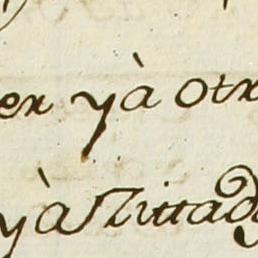 er yà otr
yà Zittad